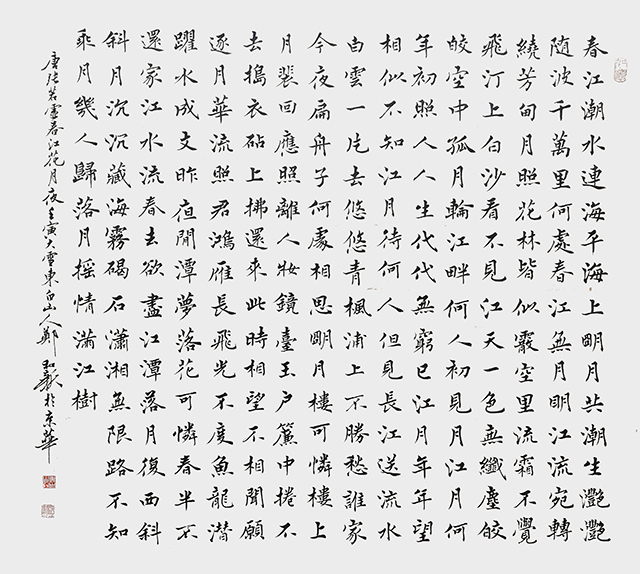 春江潮水連海平海上朙月共潮生灔灔
随波千萬里何處春江無月朙江流宛轉
繞芳甸月照花林皆似霰空里流霜不覺
飛汀上白沙看不見江天一色無纖塵皎
皎空中孤月輪江畔何人初見月江月何
年初照人人生代代無窮已江月年年望
相似不知江月待何人但見長江送流水
白雲一片去悠悠青楓浦上不勝愁誰家
今夜扁舟子何處相思朙月樓可憐樓上
月裴回應照離人妝鏡臺玉户簾中捲不
去搗衣砧上拂還來此時相望不相聞願
逐月華流照君鴻雁長飛光不度魚龍潛
躍水成文昨夜閒潭夢落花可憐春半不
還家江水流春去欲盡江潭落月復西斜
斜月沉沉藏海霧碣石瀟湘無限路不知
乘月幾人歸落月摇情滿江樹
唐張若虛春江花月夜壬寅大雪東白山人鄭於京華